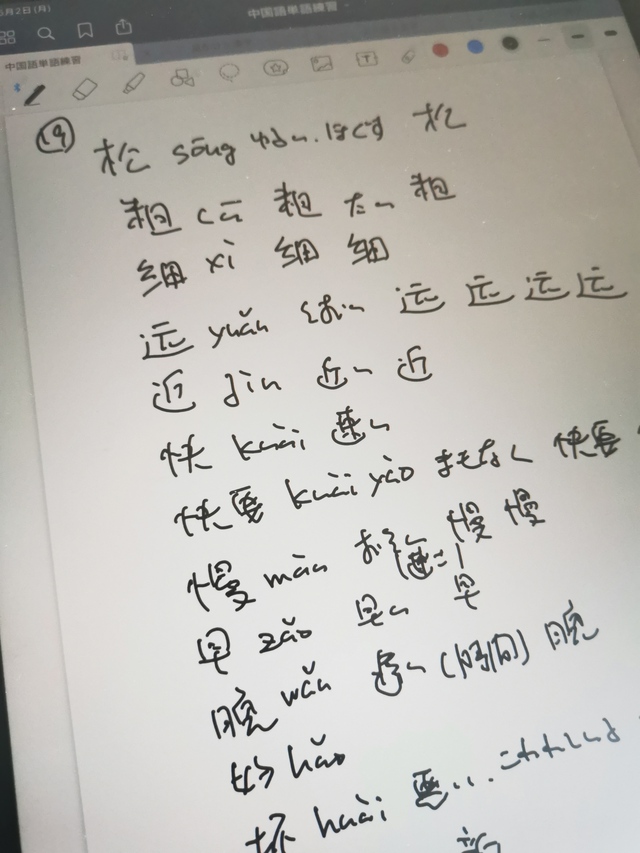 5月2日(月)
中国語単語練習
中国語単語練習
⑲ 松 sōng ゆるい.ほぐす 松
粗 cū 粗 太い 粗
细 xì 细 细
远 yuǎn 遠い 远 远 远 远
近 jìn 近い 近
快 kuài 速い
快要 kuài yào まもなく 快要
慢 màn おそい 慢 慢
早 zǎo 早い 早
晚 wǎn 遅い(時間) 晚
好 hǎo
坏 huài 悪い.